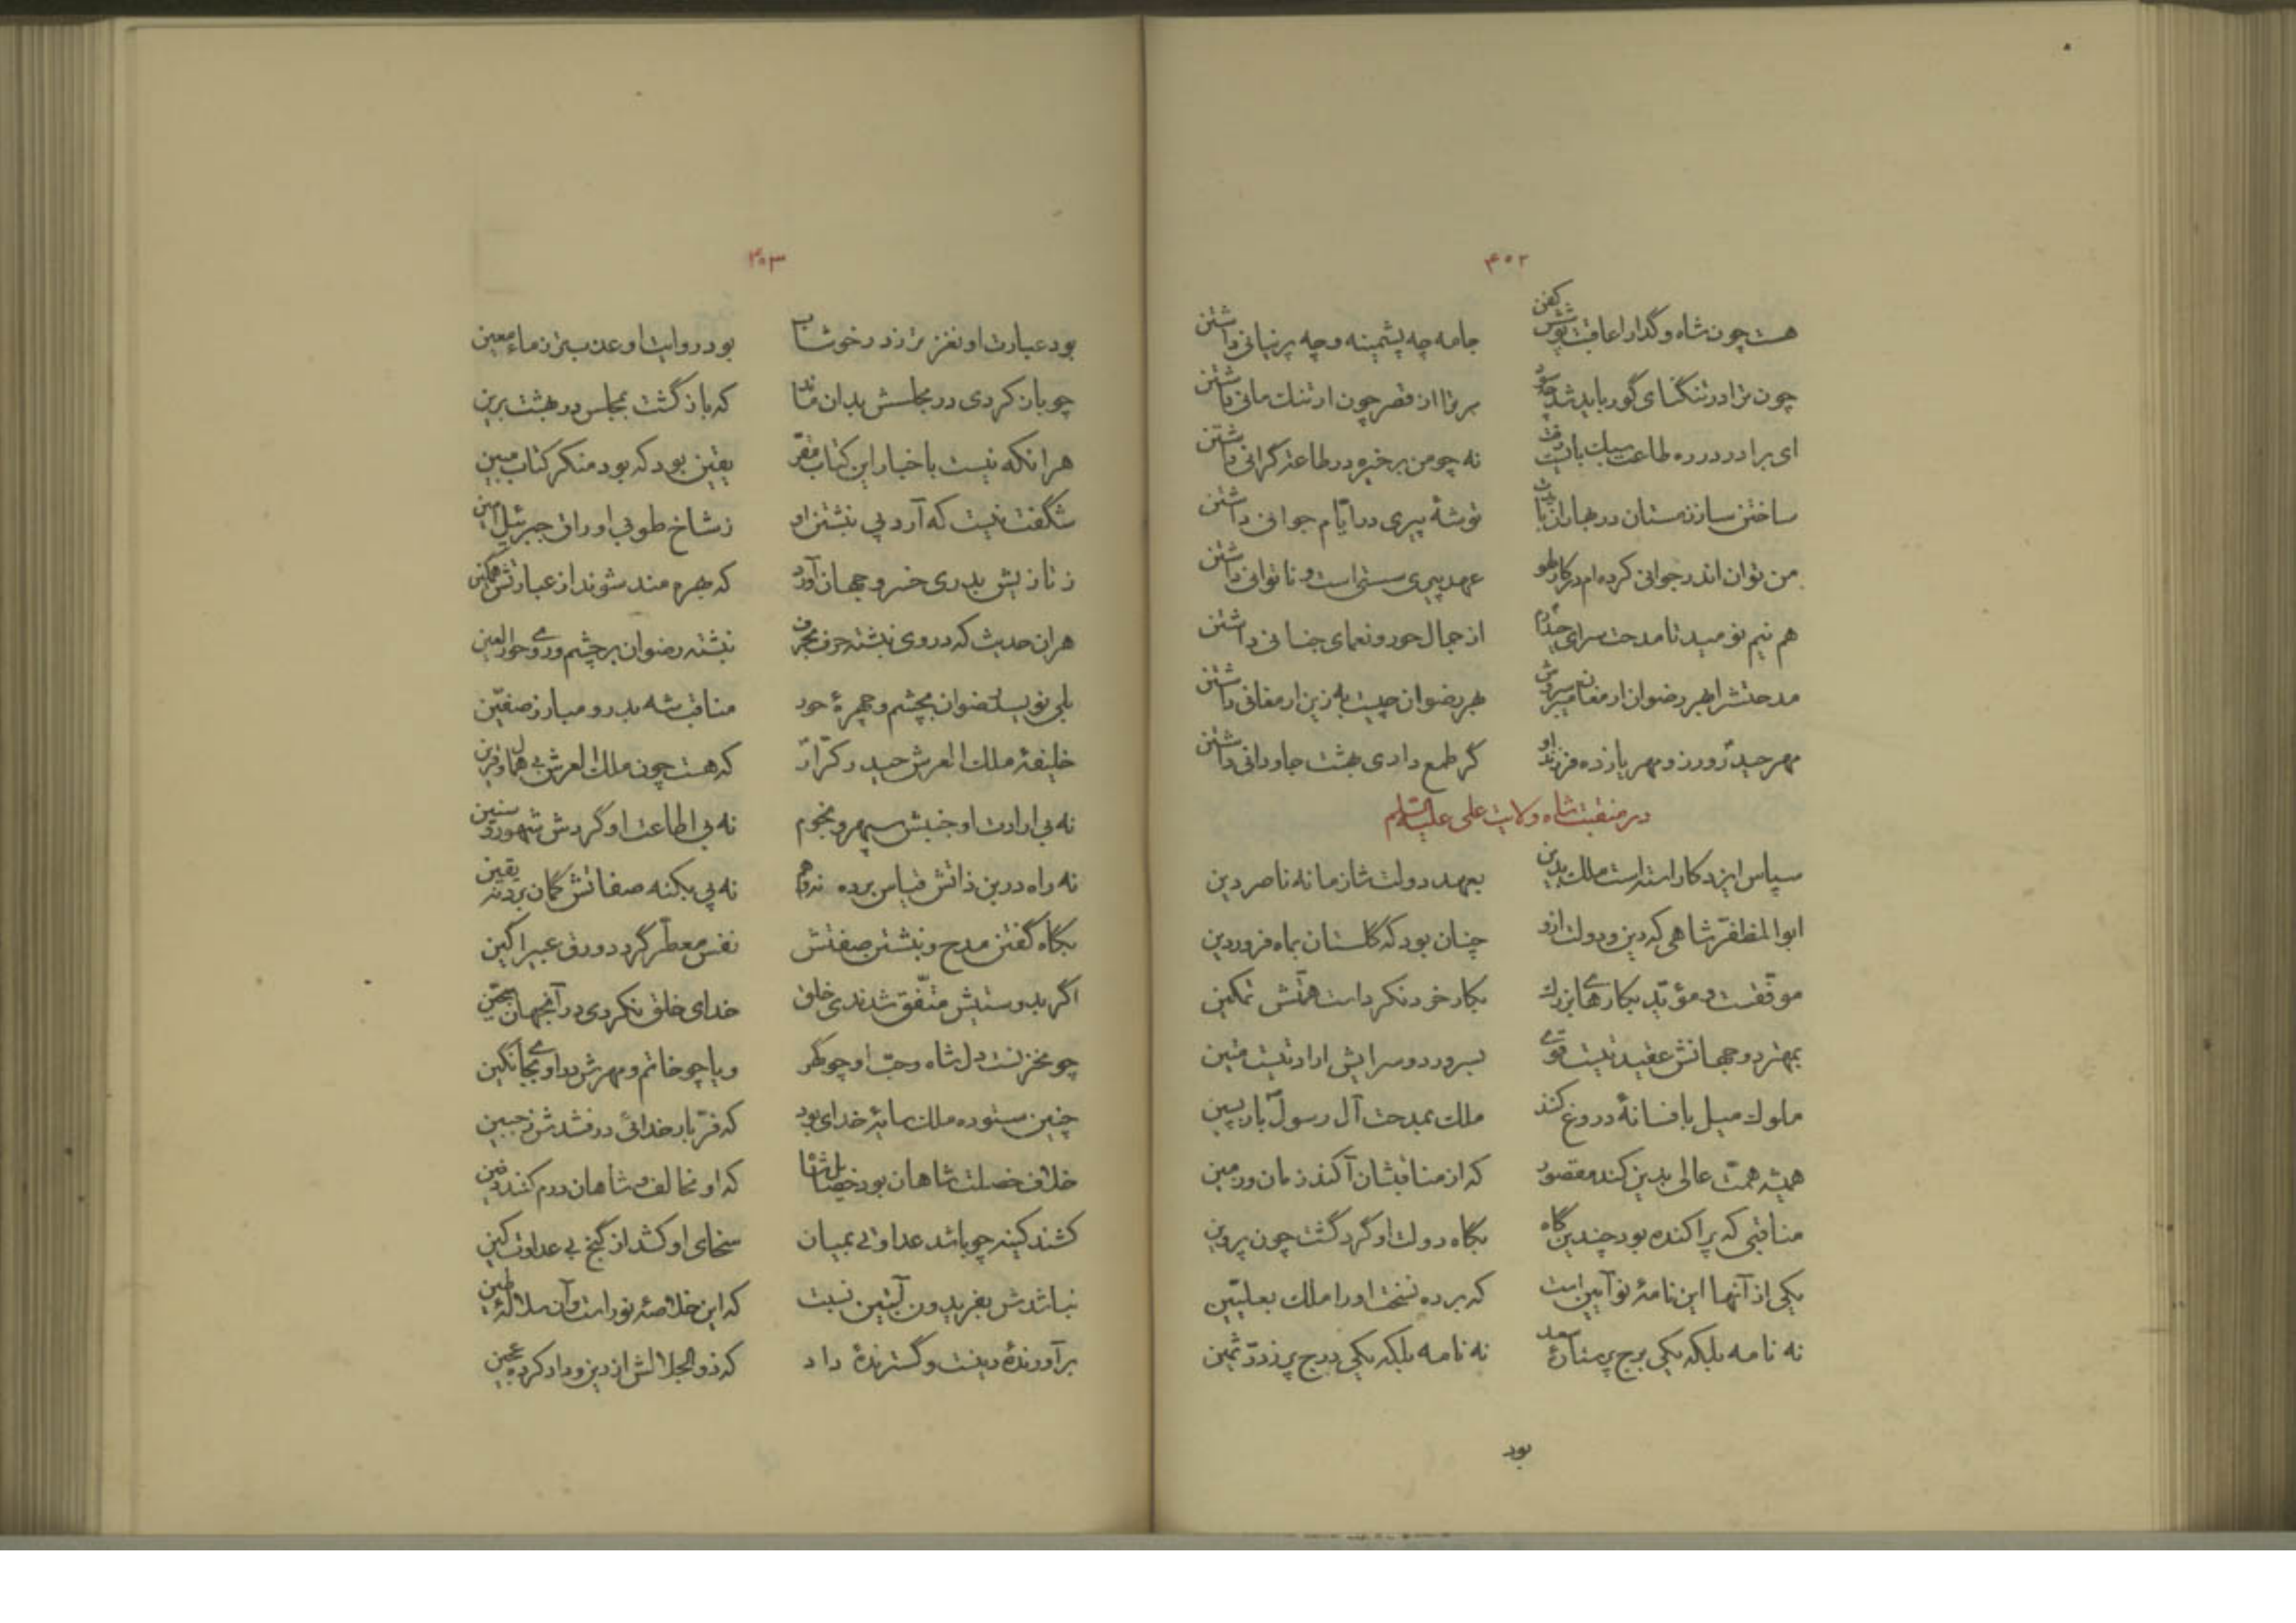 ۴۰۲
هست چون شاه و گدا را عاقبت پوشش کفن جامه چه پشمینه و چه پرنیانی داشتن
چون ترا در تنگنای گور باید شد چه سود مر ترا از قصر چون ارتنگ مانی داشتن
ای برادر در ره طاعت سبک بایدت رفت نه چو من بر خیره در طاعت گرانی داشتن
ساختن ساز زمستان در بهاران بایدت توشهٔ پیری در ایّام جوانی داشتن
من توان اندر جوانی کرده‌ام در کار لهو عهد پیری سستی است و ناتوانی داشتن
هم نیم نومید تا مدحت سرای حیدرم از جمال حور و نعمای جنانی داشتن
مدحتش را بهر رضوان ارمغان بهر رضوان چیست به زین ارمغانی داشتن
مهر حیدر ورز و مهر یازده فرزند او گر طمع داری بهشت جاودانی داشتن
در منقبت شاه ولایت علی علیه السّلم
سپاس ایزد کاراسته است ملک بدین بعهد دولت شاه زمانه ناصر دین
ابوالمظفّر شاهی که دین و دولت ازو چنان بود که گلستان بماه فروردین
موفّقست و مؤیّد بکارهای بزرک بکار خرد نکردست همّتش تمکین
بمهتر دو جهانش عقیدتیست قوی بسرور دو سرایش ارادتیست متین
ملوک میل بافسانهٔ دروغ کنند ملک بمدحت آل رسول بارپسین
همیشه همّت عالی بدین کند مقصود که از مناقبشان آکند زمان و زمین
مناقبی که پراکنده بود چندین گاه بگاه دولت او گرد گشت چون پروین
یکی از آنها این نامهٔ نوآیین است که برده نسخت او را ملک بعلیّین
نه نامه بلکه یکی برج پر ستارهٔ سعد نه نامه بلکه یکی درج پر ز درّ ثمین
بود
۴۰۳
بود عبارت او نغزتر ز در خوشاب بود روایت او عذب‌تر ز ماء معین
چو باز کردی در مجلسش بدان ماند که باز گشت بمجلس در بهشت برین
هر انکه نیست باخبار این کتاب مقرّ یقین بود که بود منکر کتاب مبین
شگفت نیست که آرد پی نبشتن او ز شاخ طوبی اوراق جبرئیل امین
ز تازیش بدری خسرو جهان آورد که بهره‌مند شوند از عبارتش همگین
هران حدیث که در وی نبشته حرف بحرف نبشته رضوان بر چشم و روی حورالعین
بلی نویسد رضوان بچشم و چهرهٔ حور مناقب شه بدر و مبارز صفّین
خلیفهٔ ملک العرش حیدر کرّار که هست چون ملک العرش بی همال و قرین
نه بی ارادت او جنبش سپهر و نجوم نه بی اطاعت او گردش شهور و سنین
نه راه در بن ذاتش قیاس برده نه وهم نه پی بکنه صفاتش گمان برد نه یقین
بگاه گفتن مدح و نبشتن صفتش نفس معطّر گردد ورق عبیر آگین
اگر بدوستیش متّفق شدندی خلق خدای خلق نکردی در آنجهان سجّین
چو مخزنست دل شاه و حبّ او چو گهر و یا چو خاتم و مهرش در او بجای نگین
چنین ستوده ملک سایهٔ خدای بود که فرّ بار خدائی درفشدش ز جبین
خلاف خصلت شاهان بود که او مخالف شاهان درم کند
کشند کینه چو باشد عداوتی بمیان سخای او کشد از گنج بی عداوت کین
نباشدش بفریدون آبتین نسبت که این خلاصهٔ نور است وآن سلالهٔ طین
برآورندهٔ دینست و گسترندهٔ داد که ذوالجلالش از دین و داد کرده عجین